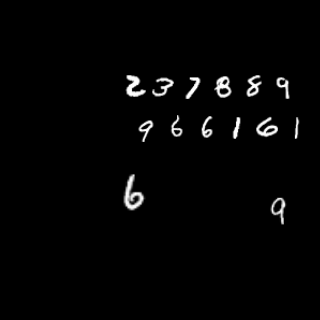 2 3 7 8 8 9
9 6 6 1 6 1
6 9